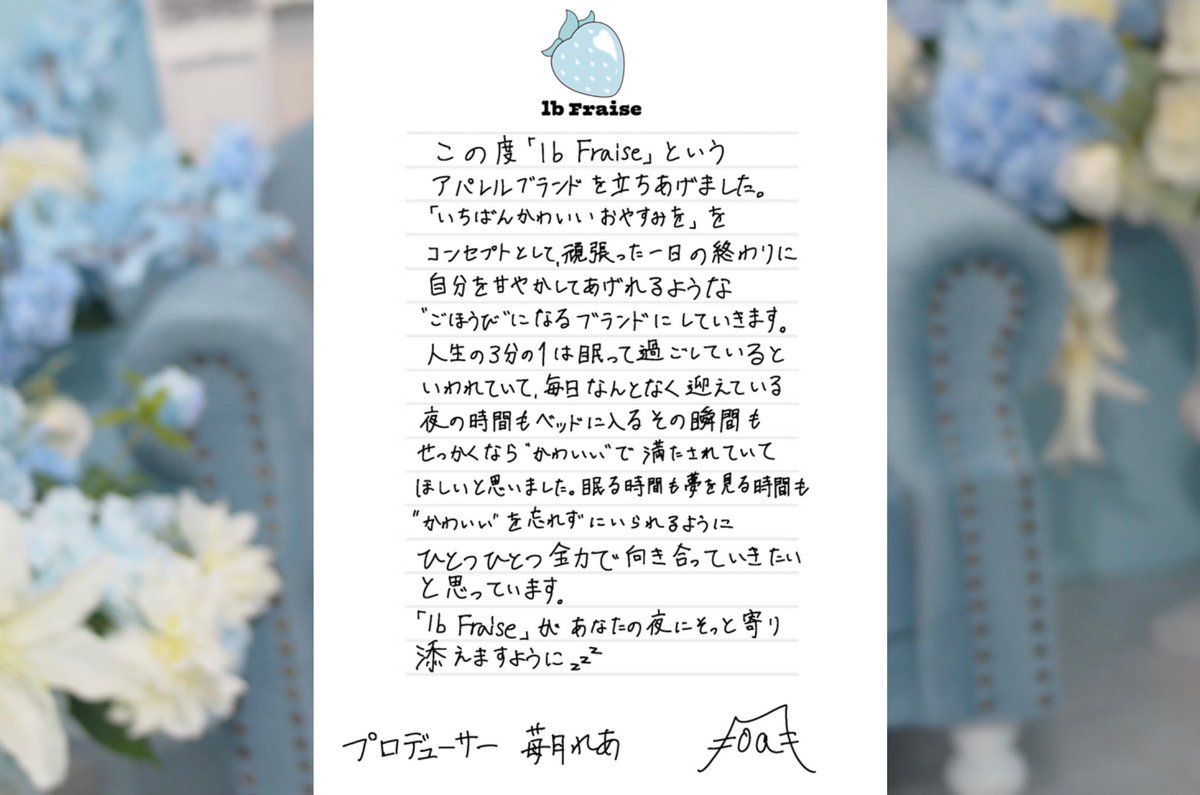 lb Fraise
この度「lb Fraise」という
アパレルブランドを立ちあげました。
「いちばんかわいいおやすみを」を
コンセプトとして、頑張った一日の終わりに
自分を甘やかしてあげれるような
"ごほうび"になるブランドにしていきます。
人生の3分の1は眠って過ごしていると
いわれていて、毎日なんとなく迎えている
夜の時間もベッドに入るその瞬間も
せっかくなら"かわいい"で満たされていて
ほしいと思いました。眠る時間も夢を見る時間も
"かわいい"を忘れずにいられるように
ひとつひとつ全力で向き合っていきたい
と思っています。
「lb Fraise」があなたの夜にそっと寄り
添えますように zzz
プロデューサー 苺月れあ